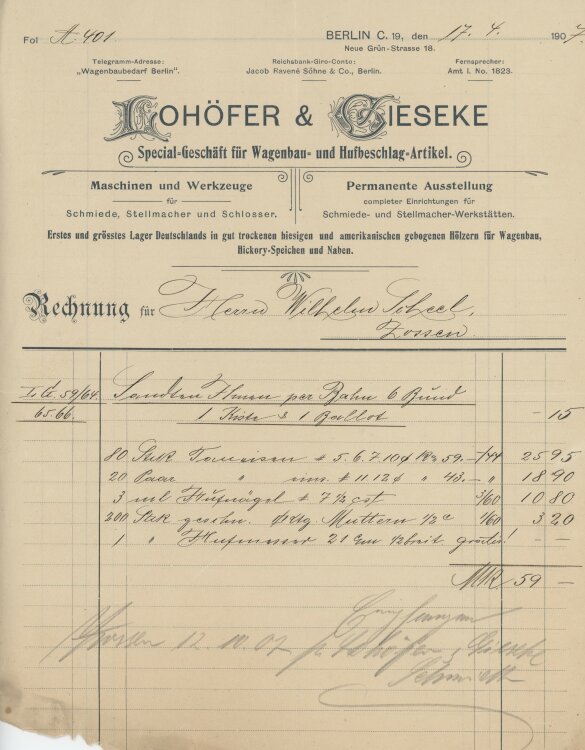 Fol A. 401
BERLIN C. 19, den 17. 4. 1907
Neue Grün-Strasse 18.
Telegramm-Adresse: Reichsbank-Giro-Conto: Fernsprecher:
„Wagenbaubedarf Berlin". Jacob Ravené Söhne & Co., Berlin. Amt I. No. 1823.
LOHÖFER & GIESEKE
Special-Geschäft für Wagenbau- und Hufbeschlag-Artikel.
Maschinen und Werkzeuge
für
Schmiede, Stellmacher und Schlosser.
Permanente Ausstellung
completer Einrichtungen für
Schmiede- und Stellmacher-Werkstätten.
Erstes und grösstes Lager Deutschlands in gut trockenen hiesigen und amerikanischen gebogenen Hölzern für Wagenbau,
Hickory-Speichen und Naben.
Rechnung für Herrn Wilhelm
Zossen.
59/64. Sandten Ihnen per Bahn 6 Bund
65.66. 1 Kiste & 1 Ballot - 15
80 Stck 5. 6. 7. 59. 25 95
20 Paar " 11. 12 " 43. - " 18 90
3 Hufnägel # 7 1/2 3/60 10 80
200 Stck Muttern 1/2" 1/60 3 20
1 " Hufmesser 21 cm breit gratis! - -
MK 59 -
Zossen 12. 10. 07 Lohöfer & Gieseke